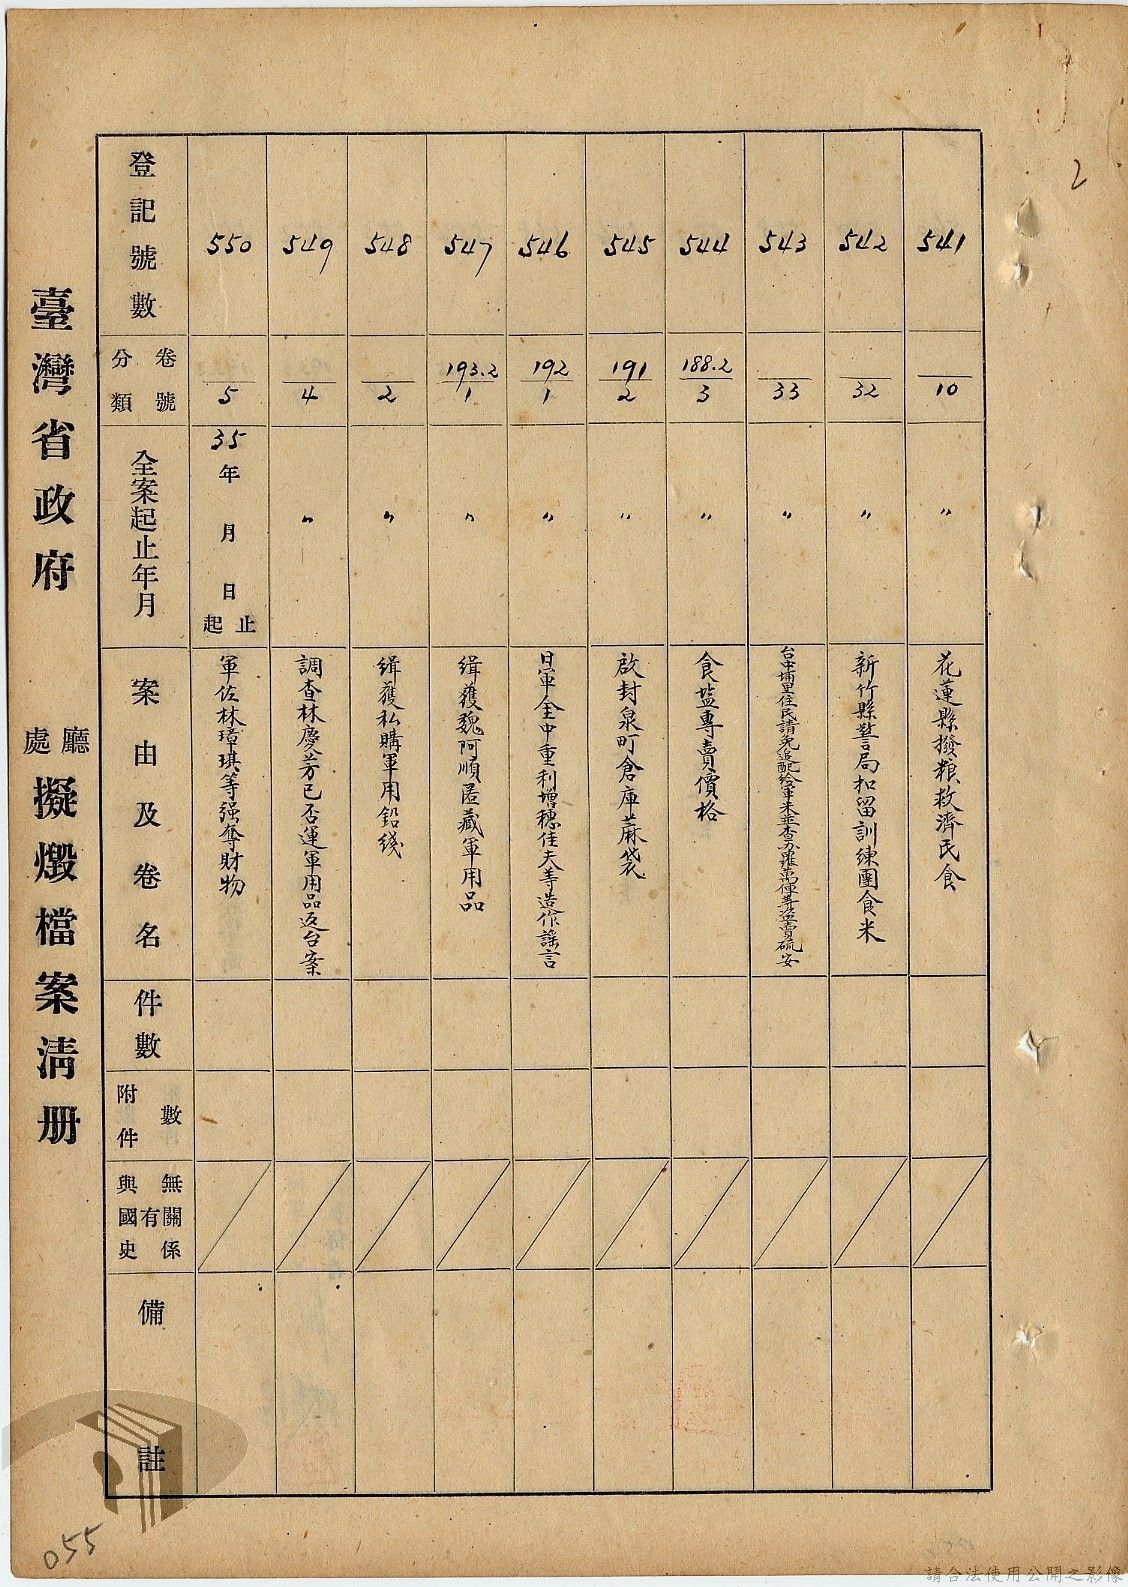 2
541
10
〃
花蓮縣撥粮救濟民食
542
32
〃
新竹縣警局扣留訓練團食米
543
33
〃
台中埔里住民請免追配給軍米並查
盜賣硫安
544
188.2
3
〃
食盐專賣價格
545
191
2
〃
啟封泉町倉庫蔴袋
546
192
1
〃
日軍金中重利增穗佳夫等造作謠言
547
193.2
1
〃
缉獲魏阿順匿藏軍用品
548
2
〃
缉獲私購軍用鉛綫
549
4
〃
調查林慶芳已否運軍用品返台案
550
5
35年 月 日
止
起
軍佐林璋琪等强奪財物
登記號數
卷號
分類
全案起止年月
案由及卷名
件數
附件數
與國史有無關係
備註
臺灣省政府
廳
處
擬燬檔案清册
055
請合法使用公開之影像